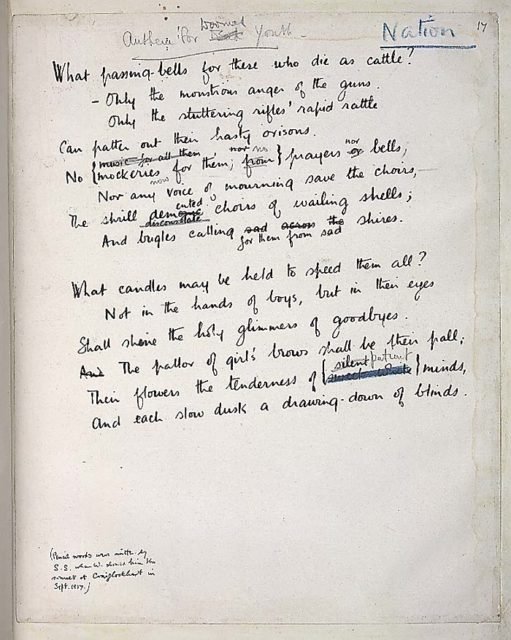 Anthem for Doomed Dead Youth
Nation
17
What passing-bells for these who die as cattle?
– Only the monstrous anger of the guns.
Only the stuttering rifles' rapid rattle
Can patter out their hasty orisons.
music for all them nor no nor
No mockeries for them; from prayers or bells;
now
Nor any voice of mourning save the choirs,–
ented
The shrill demonic choirs of wailing shells;
disconsolate
And bugles calling sad across the shires.
for them from sad
What candles may be held to speed them all?
Not in the hands of boys, but in their eyes
Shall shine the holy glimmers of goodbyes.
And The pallor of girls' brows shall be their pall;
silent patient
Their flowers the tenderness of sweet white minds,
And each slow dusk a drawing-down of blinds.
(Pencil words were written by
S.S. when W. showed him the
sonnet at Craiglockhart in
Sept. 1917.)